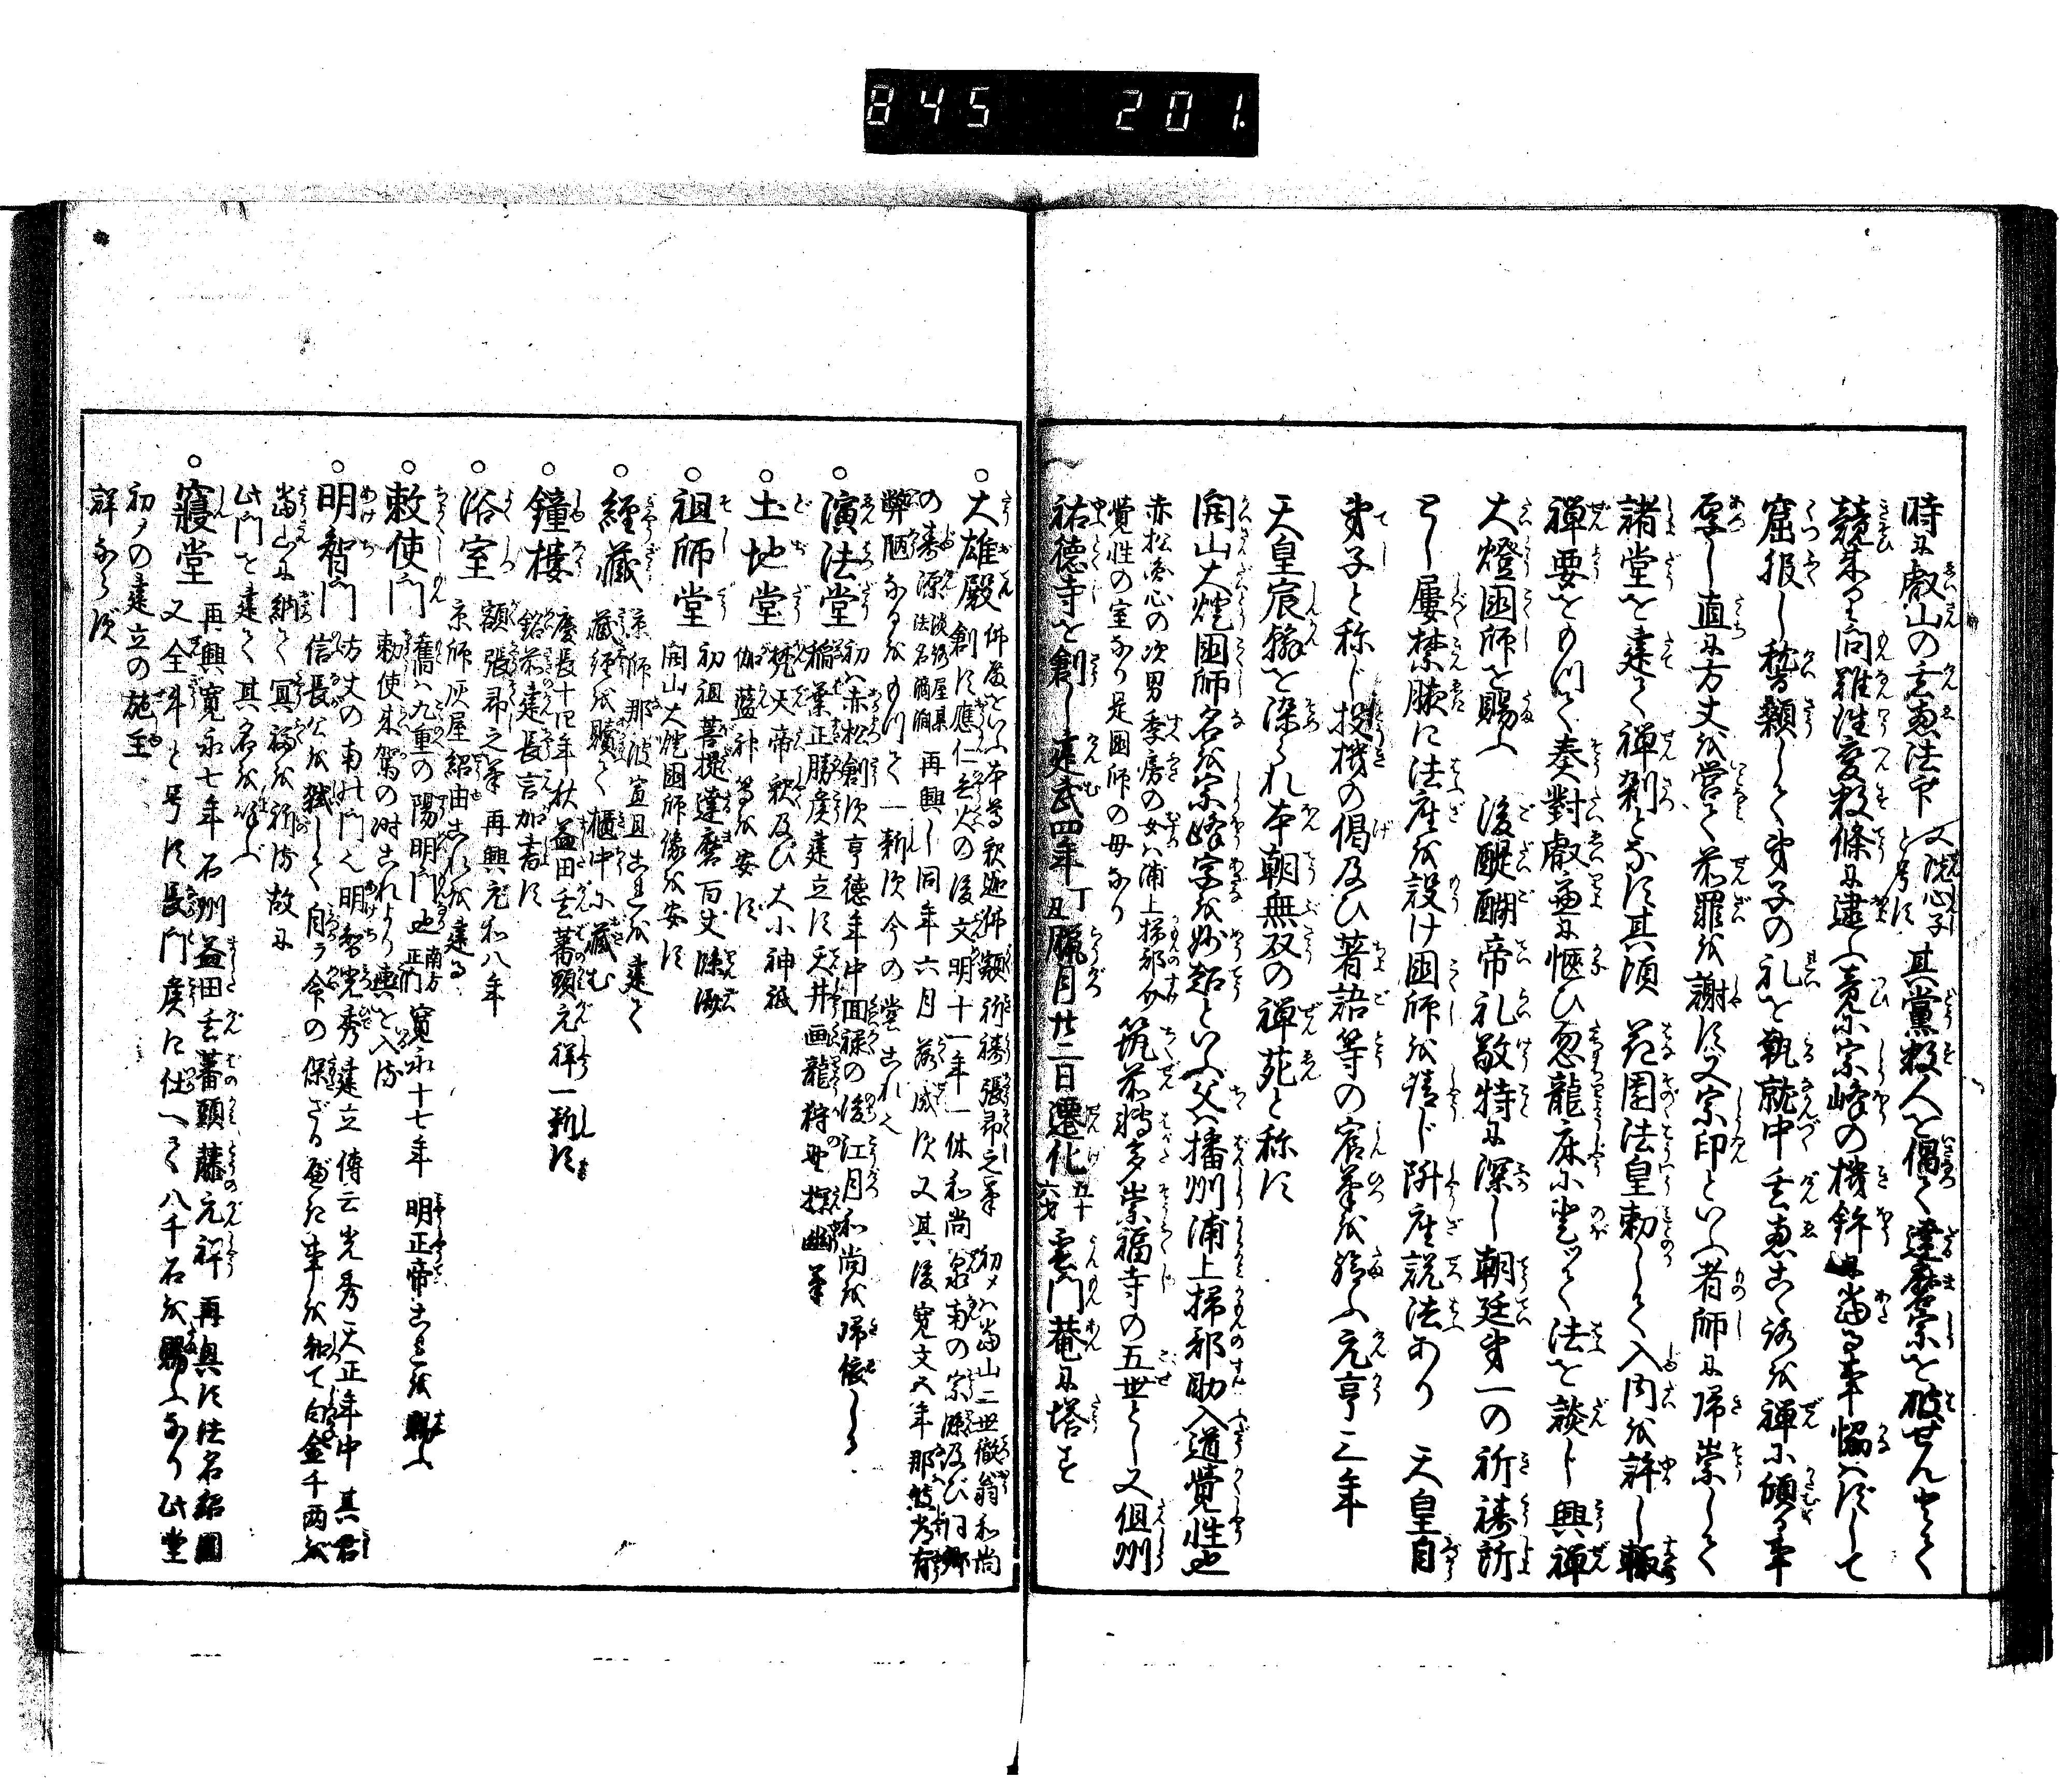 845 201.
時に叡山の玄恵法印 又洗心子と号す 其黨数人を偶て達磨宗を破せんとて
競来り問難往変数條に逮ふ竟に宗峰の機鉾に當る事恊はずして
窟服し稽顙して弟子の礼を執就中玄恵志を禅に傾る事
厚し直に方丈を営て前罪を謝す又宗印といふ者師に帰崇して
諸堂を建て禅刹となす其頃 花園法皇勅して入内を許し輙
禅要をもつて奏對叡慮に愜ひ忽龍床に登つて法を談じ興禅
大燈國師を賜ふ 後醍醐帝礼敬特に深し朝廷第一の祈祷所
とし屢禁掖に法座を設け國師を請じ陞座説法あり 天皇自
弟子と称じ投機の偈及ひ著語等の宸筆を給ふ元亨三年
天皇宸翰を染られ本朝無双の禅苑と称す
開山大燈國師名を宗峰字を妙超といふ父は播州浦上掃部助入道覺性也
赤松円心の次男季房の女は浦上掃部介
覺性の室なり是國師の母なり
筑前博多崇福寺の五世とし又但州
祐徳寺を創し建武四年丁丑臘月廿二日遷化五十六才雲門菴に塔す
○大雄殿 佛殿といふ本尊釈迦佛額祈祷張即之筆 初メは當山二世徹翁和尚
創す應仁兵火の後文明十一年一休和尚泉南の宗臨及び同郷
の寿源 淡路屋某法名滴凅 再興し同年六月落成す又其後寛文五年那波常有
弊陋なるをもつて一新す今の堂これ也
○演法堂 初は赤松創す亨徳年中回禄の後江月和尚を帰依しる
稲葉正勝侯建立す天井画龍狩野探幽筆
○土地堂 梵天帝釈及び大小神祇
伽藍神等を安ず
○祖師堂 初祖菩提達磨百丈臨済
開山大燈國師像を安す
○經藏 京師那波宣旦これを建て
藏経を贖て櫃中に藏む
○鐘樓 慶長十四年状益田玄蕃頭元祥一新す
銘前建長言加書す
○浴室 額張即之筆再興元和八年
京師灰屋紹由これを建る
○敕使門 舊は九重の陽明門也 南方正門 寛永十七年 明正帝これを賜ふ
勅使来駕の時これより輿を入る
○明智門 方丈の南の門也明智光秀建立 傳云光秀天正年中其君
信長公を弑して自ラ命の保ざる耻き事を知て白金千両を
當山に納て冥福を祈る故に
此門を建て其名を呼ぶ
○寢堂 再興寛永七年石州益田玄蕃頭藤元祥再興す法名紹圓
又全斗と号す長門侯に仕へて八千石を賜ふなり此堂
初メの建立の施主
詳ならず